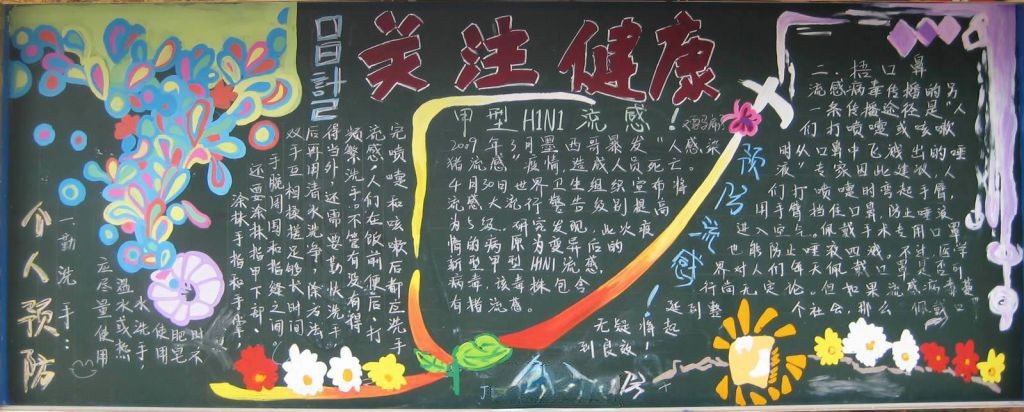 关注健康！
个人预防
一、勤洗手：
频繁洗手。不管有没有得
流感"人们在饭前便后、打
完喷嚏和咳嗽后都应洗手
得当外，还需要勤快洗手，
后再用清水洗净，除方法
双手互相搓揉足够长时间
手腕周围和指缝之间，
还要涂抹指甲下部，
涂抹手指和手掌，
应尽量使用
温水或热
水洗手，
甲型H1N1流感
2009年3月墨西哥暴发"人感染
猪流感"疫情，造成人员死亡。
4月30日世界卫生组织宣布将
流感大流行警告级别提高
为5级，研究发配，此次疫
情的病原为变异后的
新型甲型H1N1流感
病毒，该毒株包含
有猪流感
预防流感！
二、捂口鼻
流感病毒传播的另
一条传播途径是"人
们打喷嚏或咳嗽
时从口鼻中飞溅出的唾
液"，专家因此建议，人
们打喷嚏时弯起手臂，
用手臂挡住口鼻，防止唾液
进入空气。佩戴手术专用口罩
也能防止唾液四溅，不过医学
界对人们每天佩戴口罩是否可
行尚无定论。但如果流感病毒蔓
延到整个社会，那么佩戴
无疑将起
到良效！